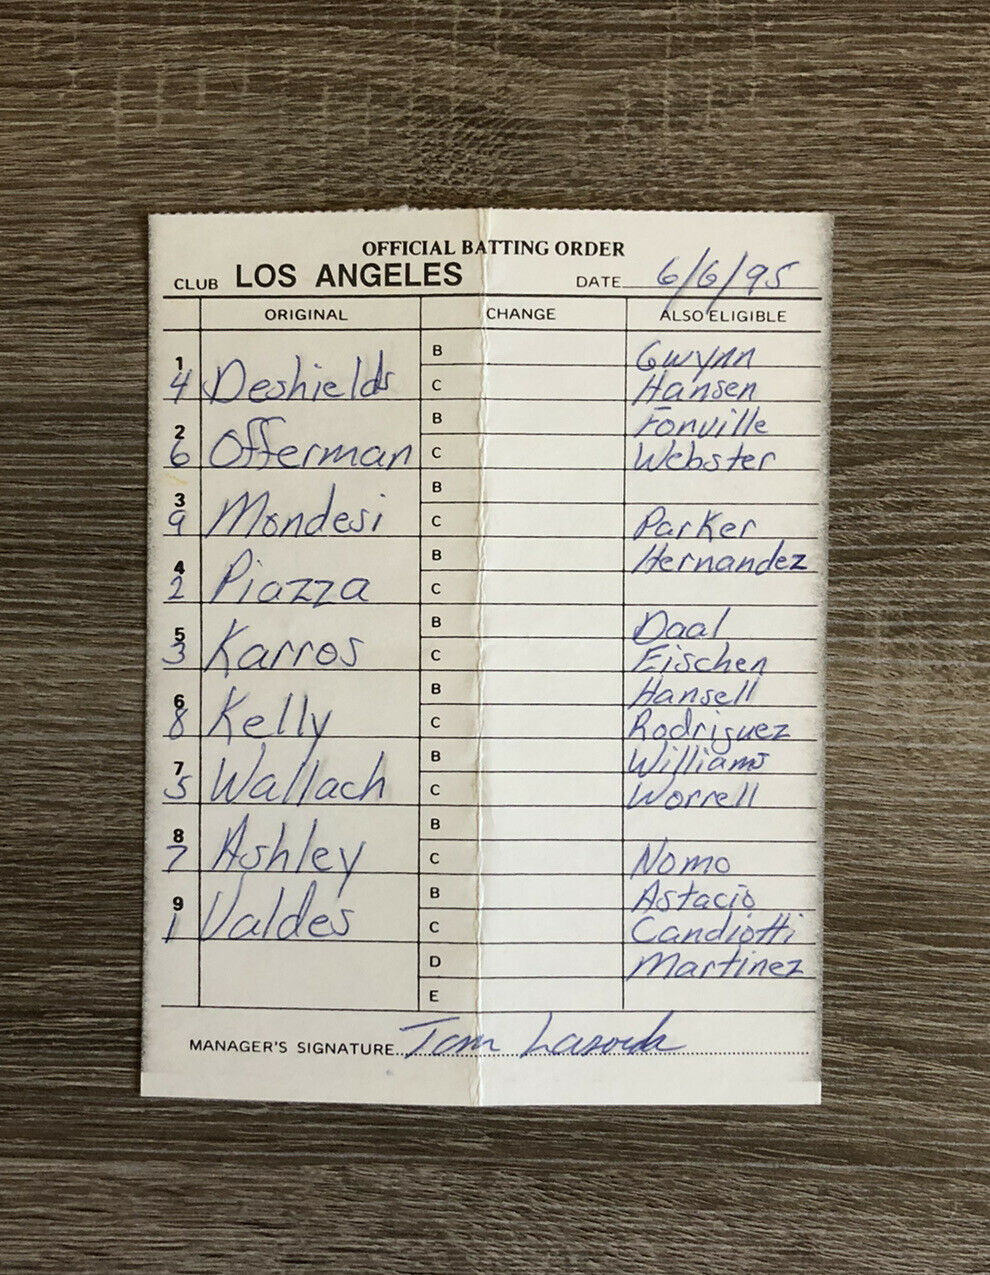 OFFICIAL BATTING ORDER
CLUB LOS ANGELES DATE 6/6/95
ORIGINAL CHANGE ALSO ELIGIBLE
B Gwynn
1 4 Deshields C Hansen
B Fonville
2 6 Offerman C Webster
B
3 9 Mondesi C Parker
B Hernandez
4 2 Piazza C
B Daal
5 3 Karros C Eischen
B Hansell
6 8 Kelly C Rodriguez
B Williams
7 5 Wallach C Worrell
B
8 7 Ashley C Nomo
B Astacio
9 1 Valdes C Candiotti
D Martinez
E
MANAGER'S SIGNATURE Tom Lasorda